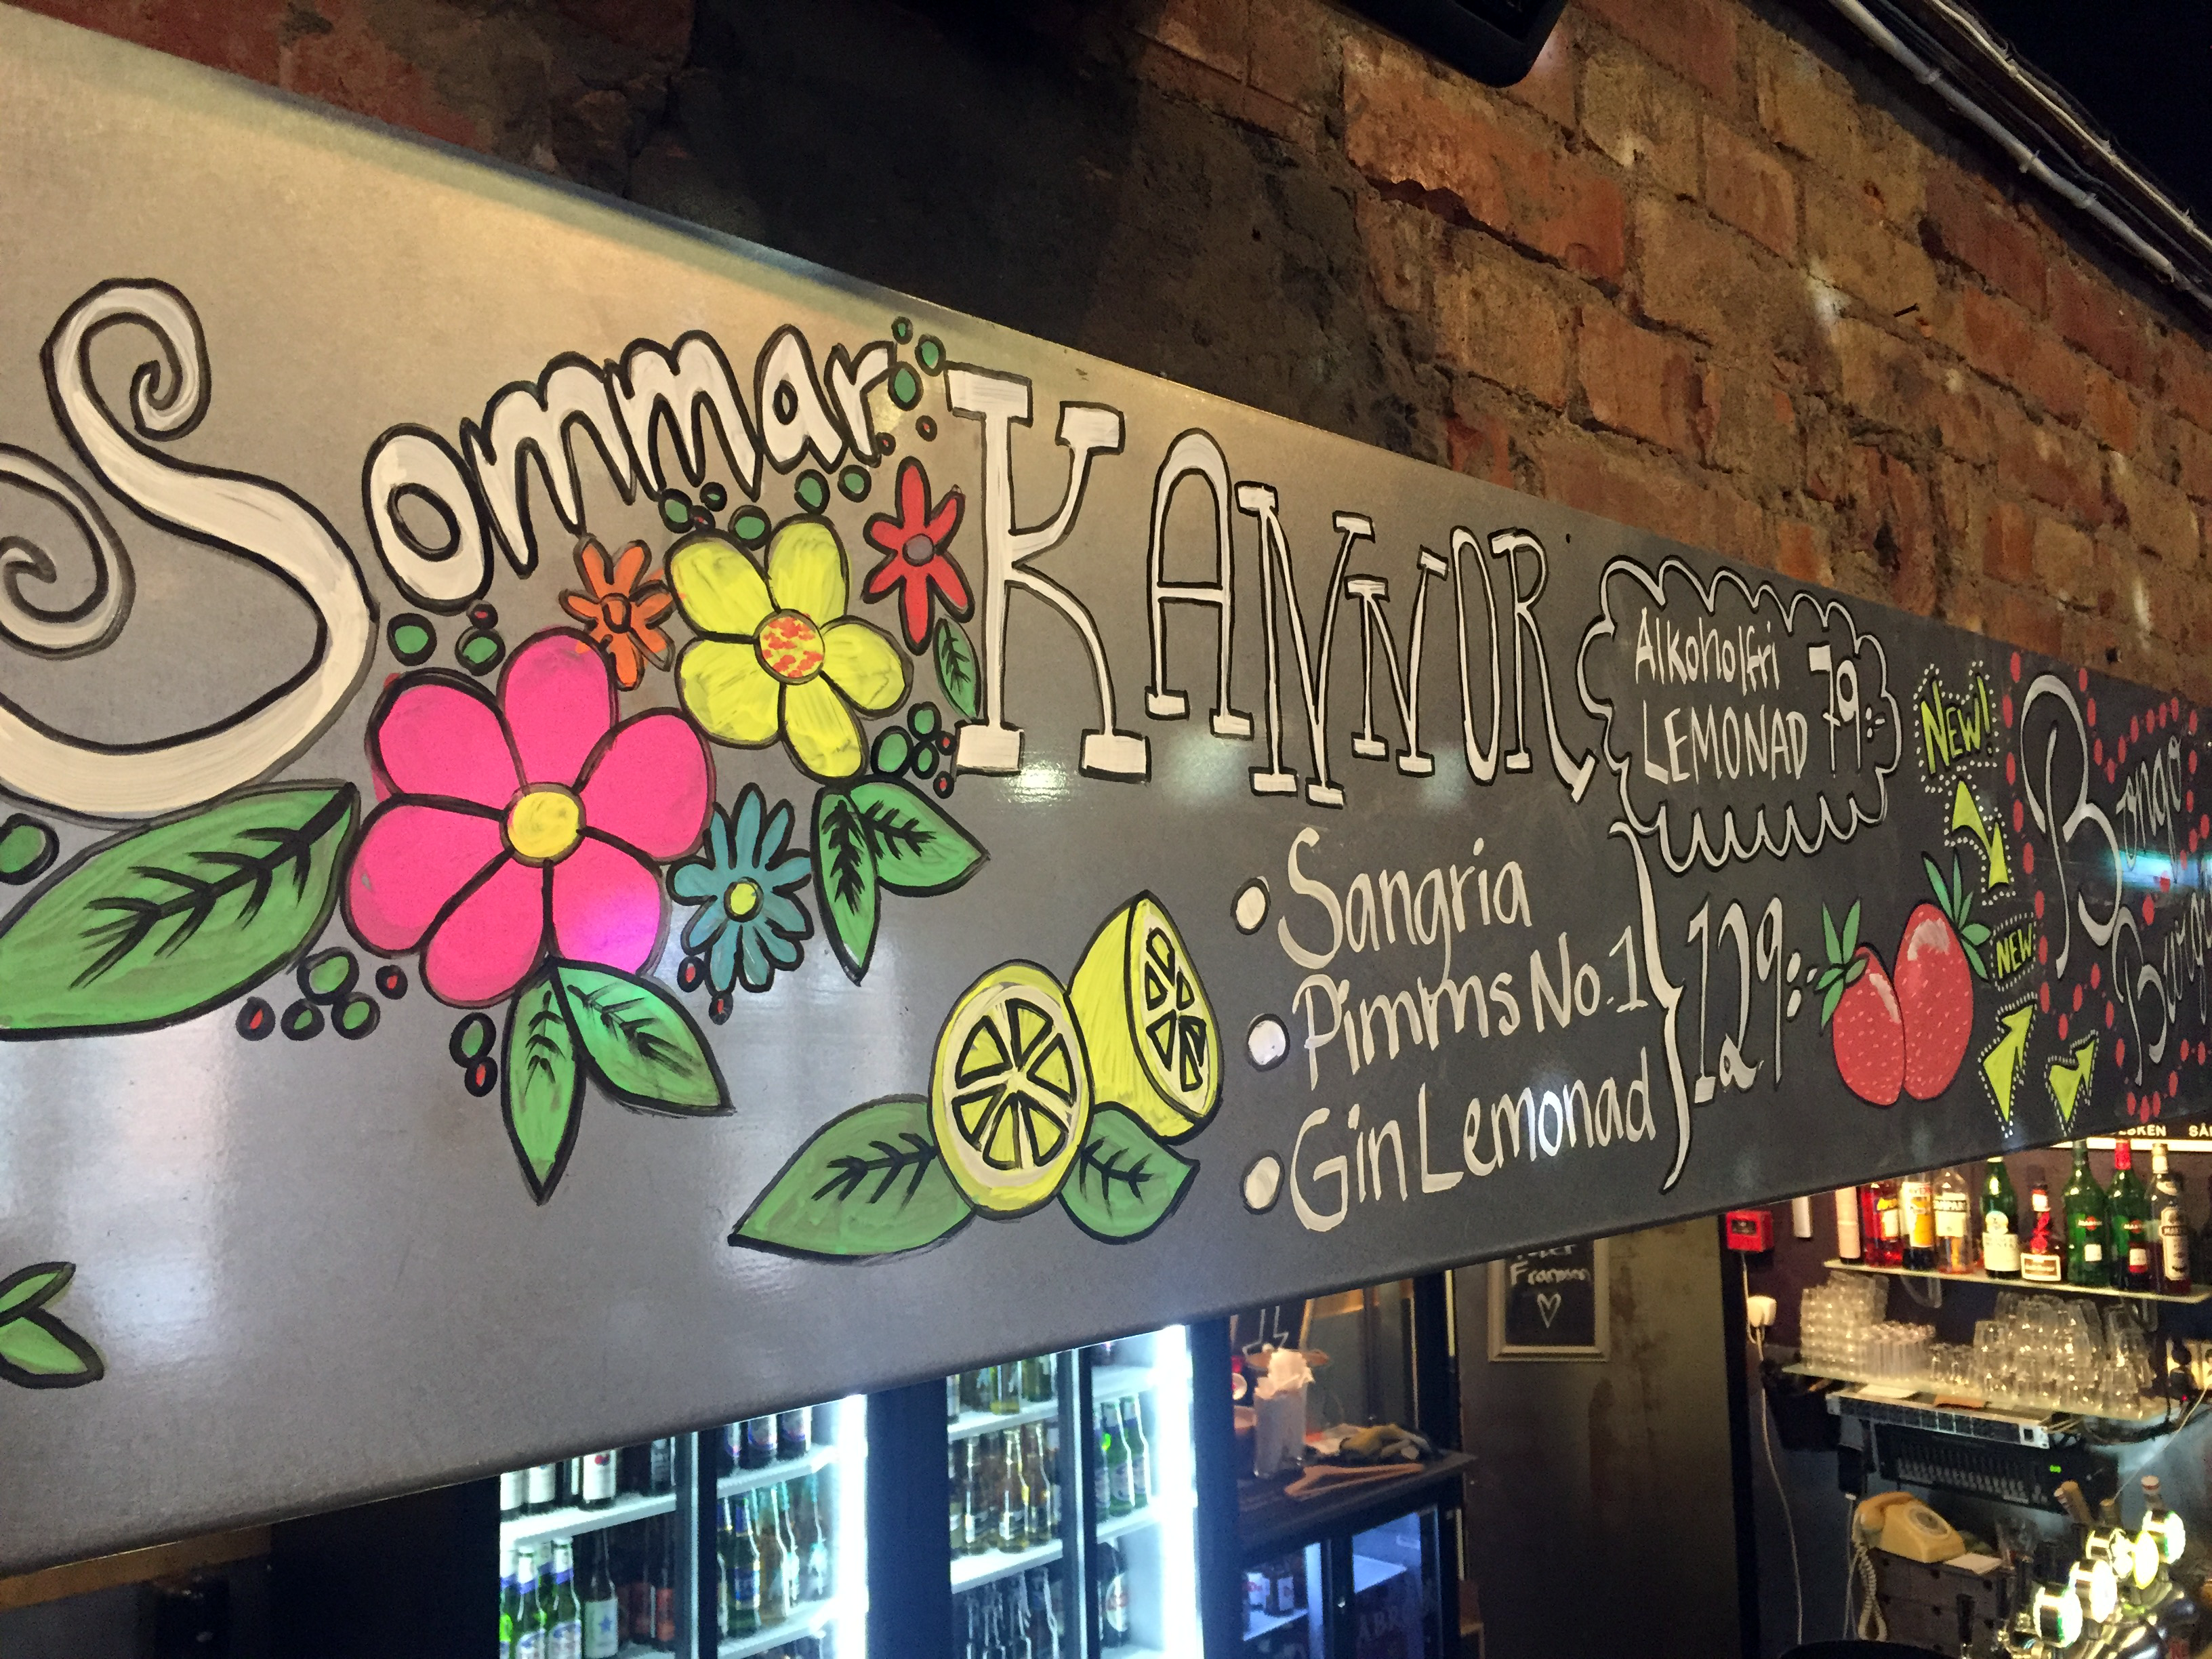 Sommar
KANNOR
Alkoholfri
LEMONAD 79:-
Sangria
Pimms No.1
Gin Lemonad
129:-
NEW!
NEW
Bongo
Fransson